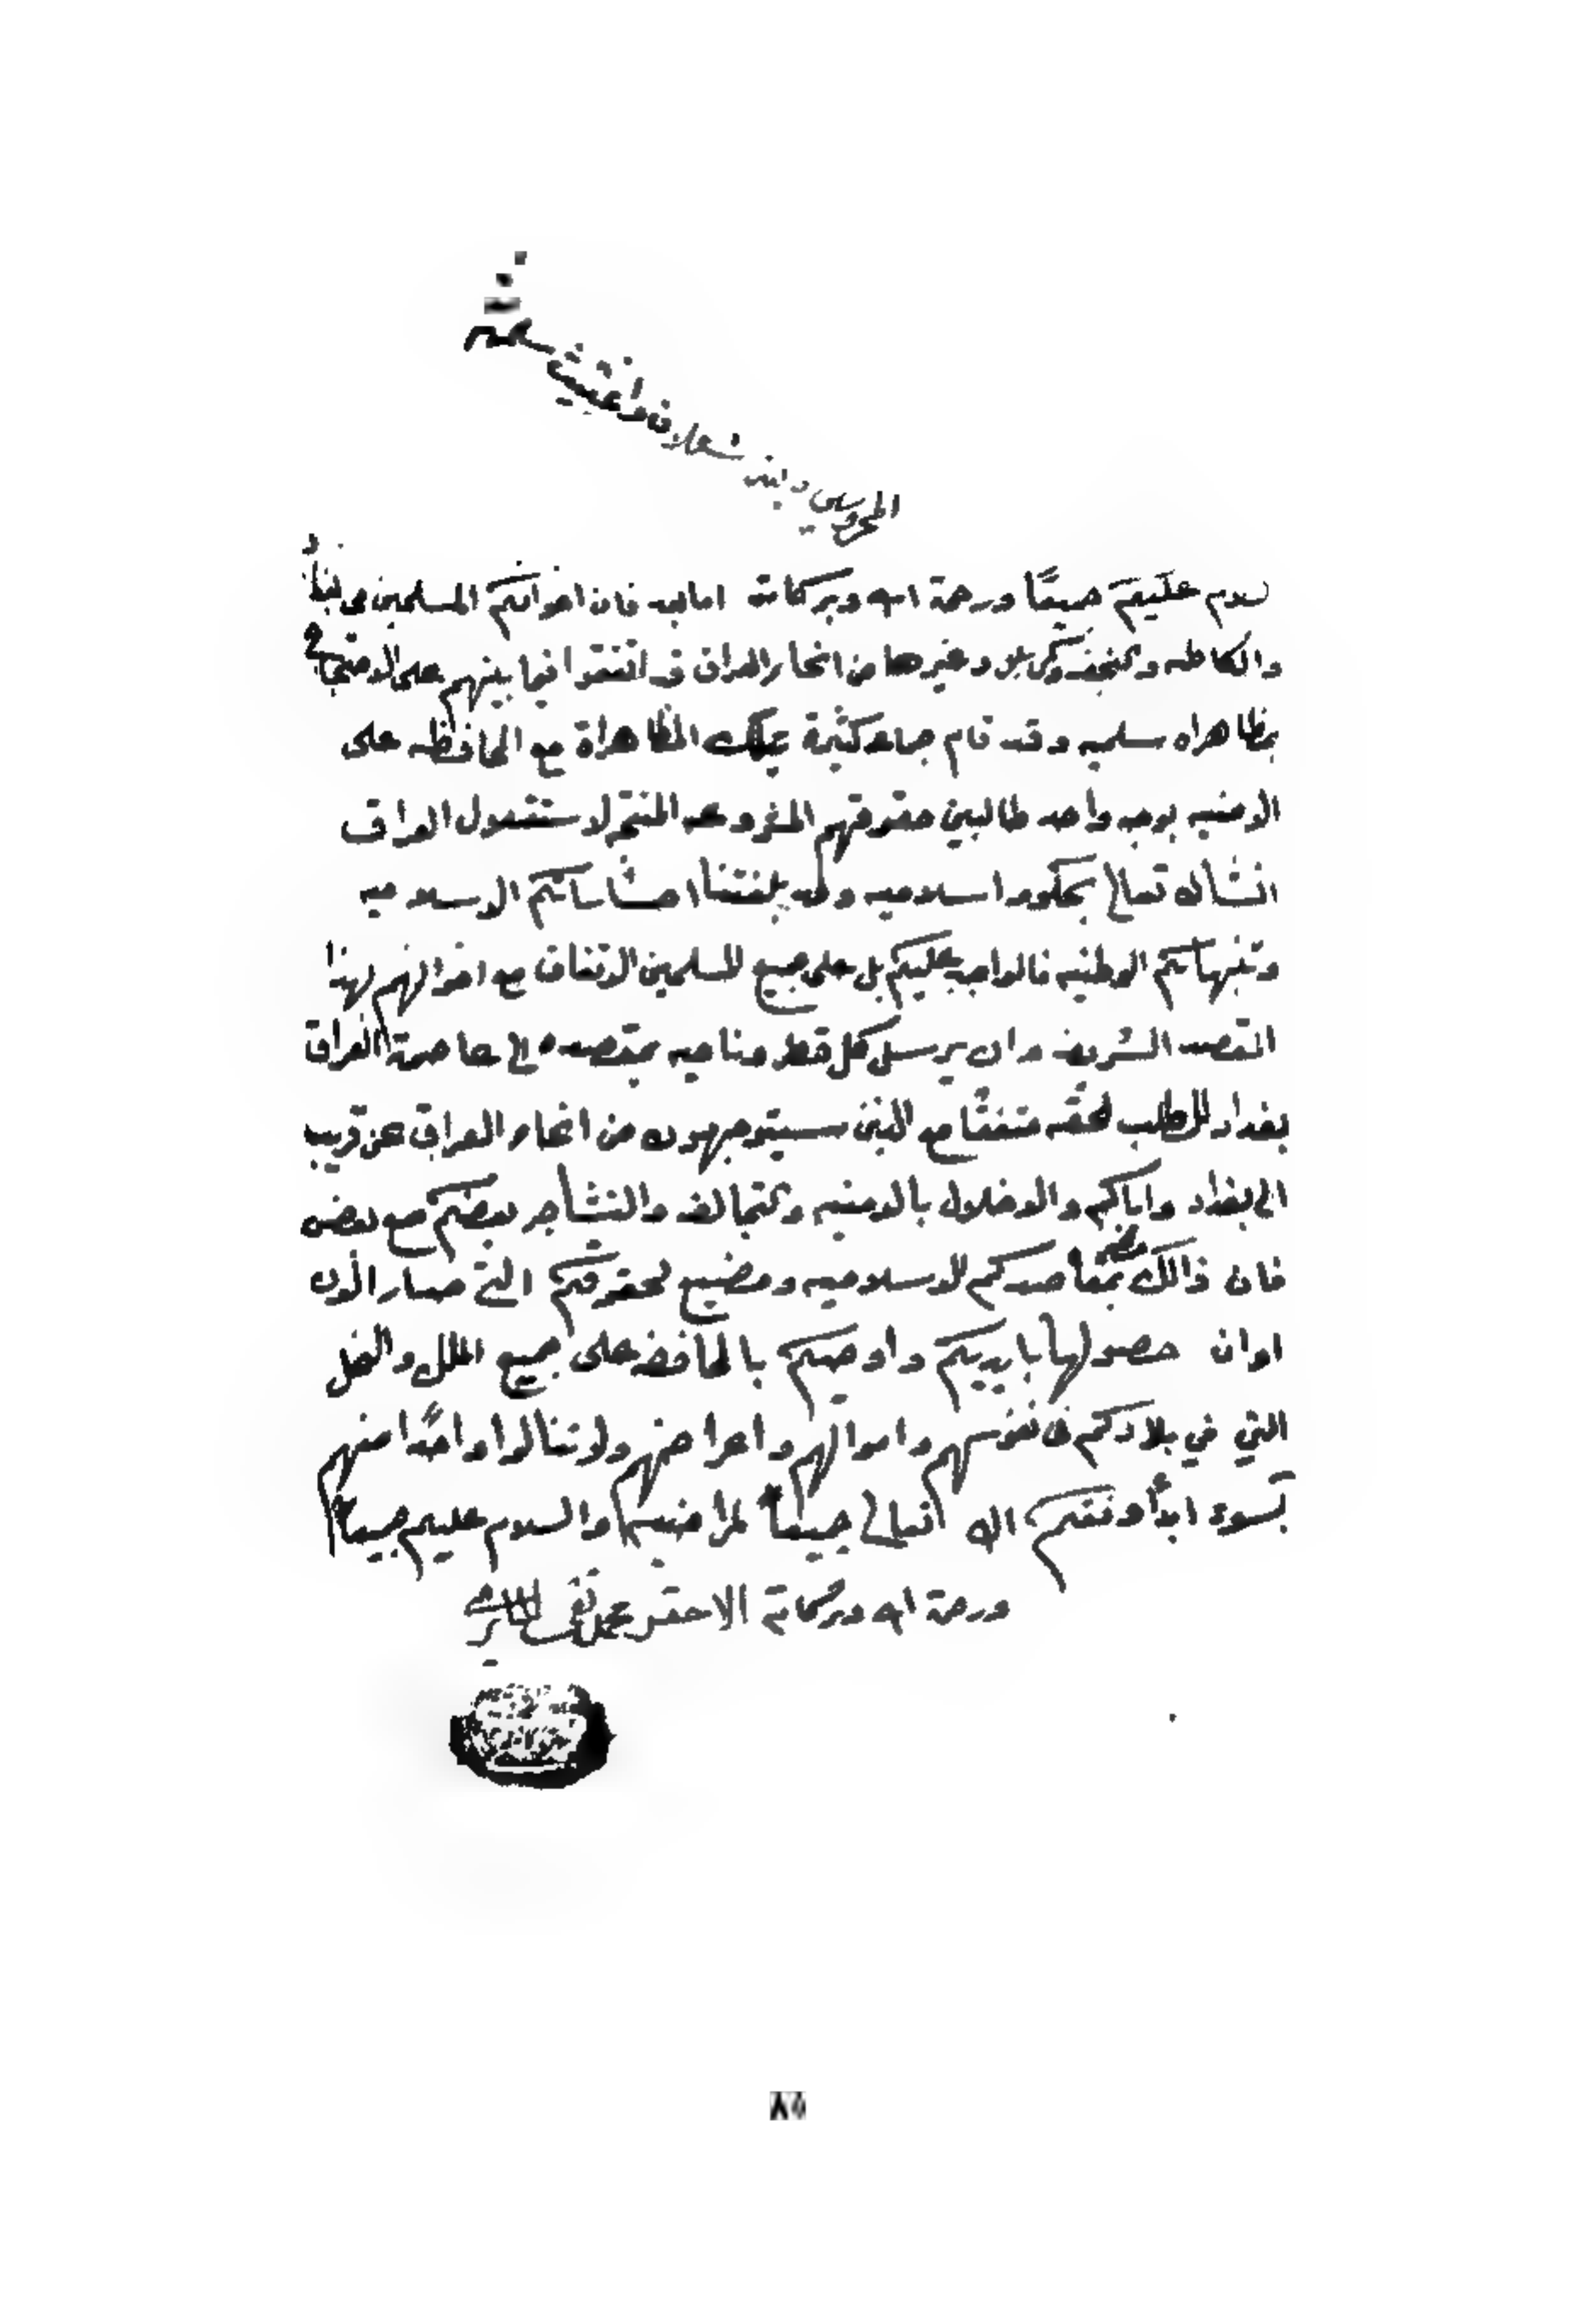 سلام عليكم جميعًا ورحمة الله وبركاته اما بعد فان اخوانكم المسلمين في بغداد
والكاظميه والنجف وكربلا وغيرها من انحاء العراق قد اتفقوا فيما بينهم على الاجتماع في
بمظاهراه سلميه وقد قام جماعه كثيرة بتلك المظاهراة مع المحافظه على
الامنيه بوجه واحد طالبين حقوقهم المشروعه المنتجه لاستقلال العراق
انشاالله تعالى بحكومه اسلاميه وقد بلغتنا احساساتكم الاسلاميه
وتنبهاتكم الوطنيه فالواجب عليكم بل على جميع المسلمين الاتفاق مع اخوانهم بهذا
المقصد الشريف وان يرسل كل قطر وناحيه بمقصده الى عاصمة العراق
بغداد للطلب لحقه متفقا مع الذين سيتوجهون من انحاء العراق عن قريب
الى بغداد واياكم والاخلال بالامنيه والتخالف والتشاجر بعضكم مع بعض
فان ذالك مضر بمقاصدكم الاسلاميه ومضيع لحقوقكم التي صار الأن
اوان حصولها بايديكم واوصيكم بالمحافضه على جميع الملل والنحل
التي في بلادكم في نفوسهم واموالهم واعراضهم ولا تنالوا واحدًا منهم
بسوء ابدأ وفقكم الله تعالى جميعاً لمراضيه والسلام عليكم جميعاً
ورحمة الله وبركاته الاحقر محمد تقي الحائري